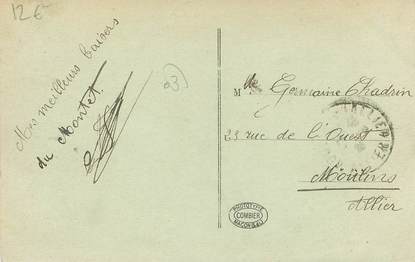 12€
Mes meilleurs baisers
du Montet.
03
Mlle Germaine Chadrin
23 rue de l'Ouest
Moulins
Allier
ALLIER
PHOTOTYPIE
COMBIER
MACON